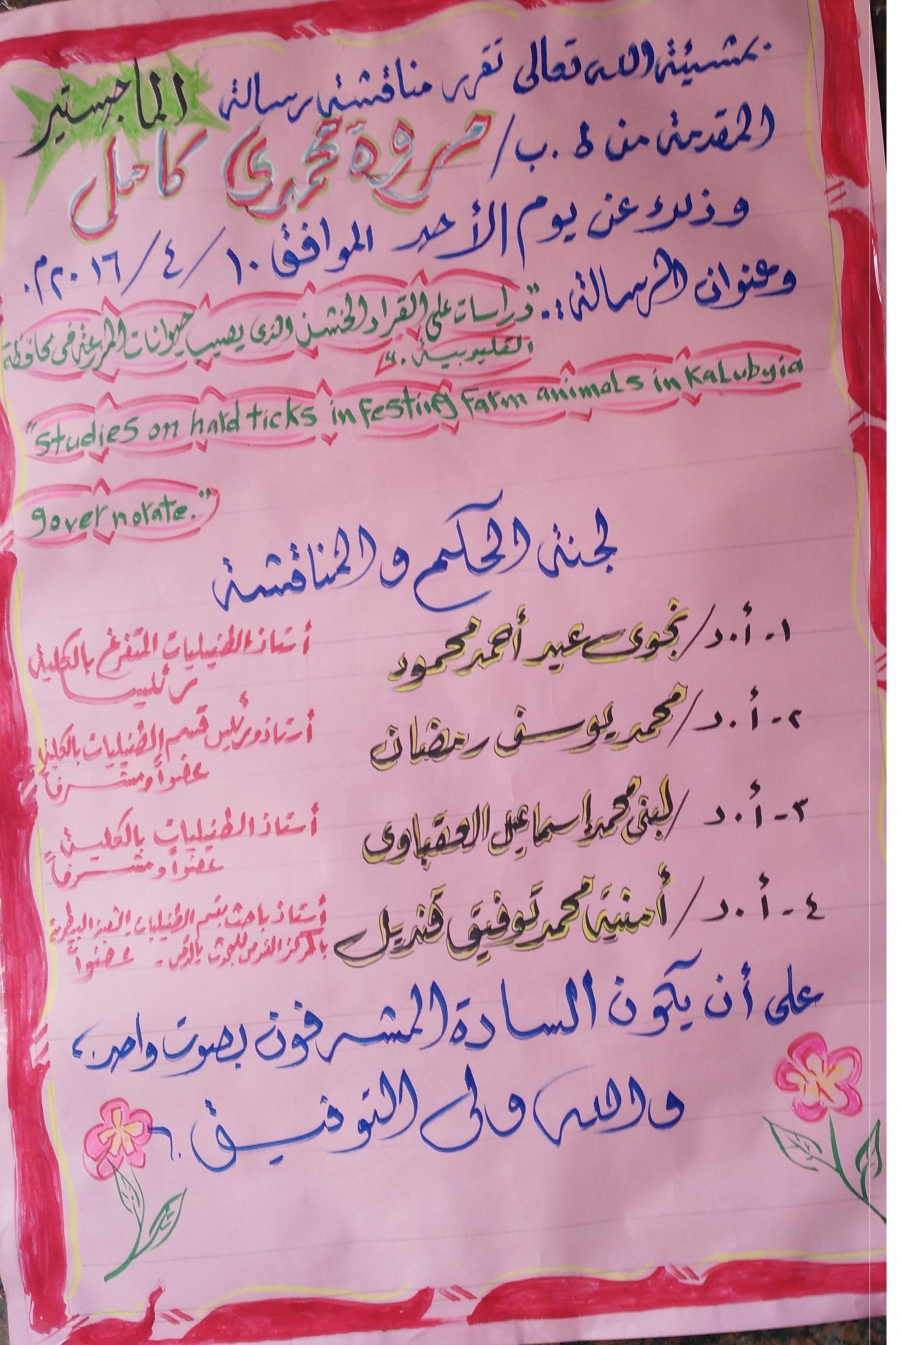 بمشيئة الله تعالى تقرر مناقشة رسالة الماجستير
المقدمة من ط.ب/ مروة حمدي كامل
وذلك عن يوم الأحد الموافق ١٠/٤/٢٠١٦م.
وعنوان الرسالة:.
"دراسات على القراد الخشن والذى يصيب حيوانات المزرعة فى محافظة
القليوبية."
"Studies on hard ticks infesting farm animals in Kalubyia
governorate."
لجنة الحكم والمناقشة
١- أ.د/ نجوى عيد أحمد محمود أستاذ الطفيليات المتفرغ بالكلية
رئيسا
٢- أ.د/ محمد يوسف رمضان أستاذ ورئيس قسم الطفيليات بالكلية
عضواً ومشرفاً
٣- أ.د/ لبنى محمد إسماعيل العقباوى أستاذ الطفيليات بالكلية
عضواً ومشرفاً
٤- أ.د/ أمنية محمد توفيق قنديل أستاذ باحث بقسم الطفيليات الشعبة البيطرية
بالمركز القومى للبحوث بالدقى. عضواً
على أن يكون السادة المشرفون بصوت واحد،
والله ولى التوفيق،